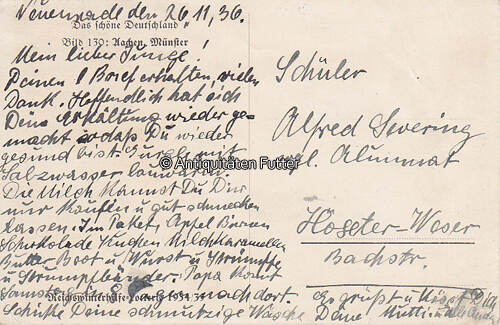 den 26.11.36.
Das schöne Deutschland
Bild 130: Aachen, Münster
Mein lieber Junge!
Deinen l. Brief erhalten, vielen
Dank. Hoffendlich hat sich
Deine Erkältung wieder ge-
macht sodaß Du wieder
gesund bist. Gurgle mit
Salzwasser lauwarm.
Die Milch kannst Du Dir
nur kaufen u gut schmecken
lassen. Im Paket, Apfel Birnen
Schokolade Kuchen Milchkaramellen
Butter Brot u Wurst u Strümpfe
u Strumpfbänder. Papa kommt
Samstag nach dort.
Reichswinterhilfe-Lotterie 1934/35
Schicke Deine schmutzige Wäsche
© Antiquitäten Futter
Schüler
Alfred Severing
Alumnat
Höxter-Weser
Bachstr.
Es grüßt u küßt Dich
Deine Mutti u